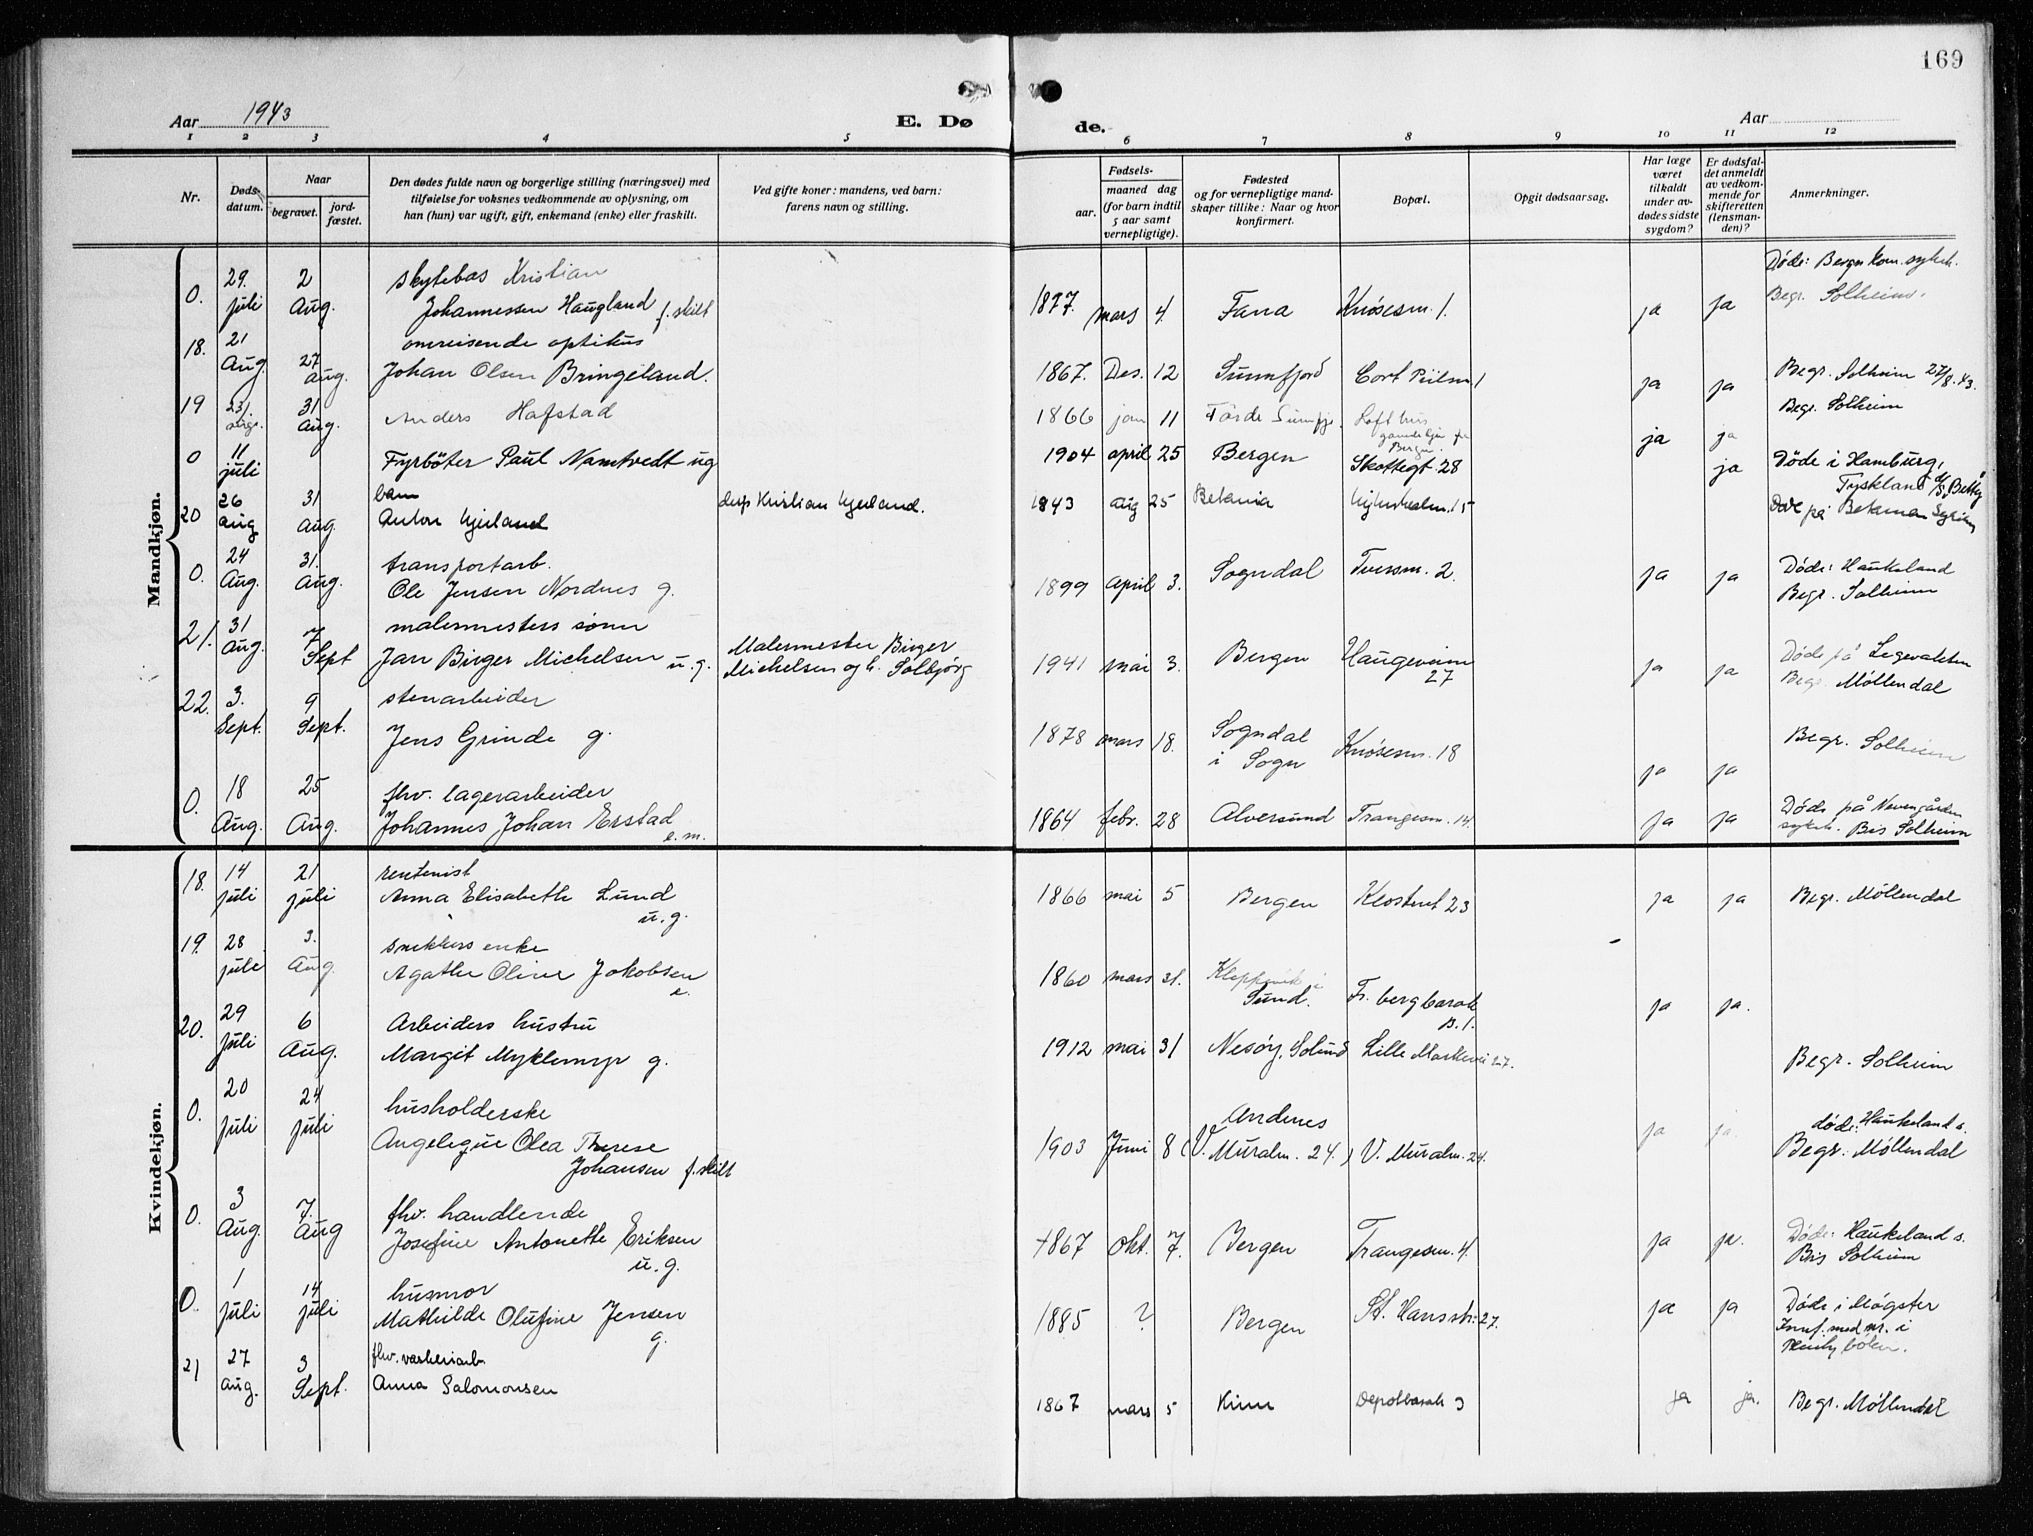 169
Aar 1943
E. Dø
de.
Aar
1 2 3 4 5 6 7 8 9 10 11 12
Nr.
Døds-
datum.
Naar
begravet.
jord-
fæstet.
Den dødes fulde navn og borgerlige stilling (næringsvei) med
tilføielse for voksnes vedkommende av oplysning, om
han (hun) var ugift, gift, enkemand (enke) eller fraskilt.
Ved gifte koner: mandens, ved barn:
farens navn og stilling.
Fødsels-
aar.
maaned dag
(for barn indtil
5 aar samt
vernepligtige).
Fødested
og for vernepligtige mand-
skaper tillike: Naar og hvor
konfirmert.
Bopæl.
Opgit dødsaarsag.
Har læge
været
tilkaldt
under av-
dødes sidste
sygdom?
Er dødsfal-
det anmeldt
av vedkom-
mende for
skifteretten
(lensman-
den)?
Anmerkninger.
Mandkjøn.
0. 29. juli 2 Aug. skytebas Kristian
Johannessen Haugland f. skilt 1877. mars 4. Fana Knøsesm. 1. ja ja Døde: Bergen kom. sykeh.
Begr. Solheim.
18. 21 Aug. 27 Aug. omreisende optikus
Johan Olsen Bringeland. 1867. Des. 12 Sunnfjord Cort Piilsm. 1 ja ja Begr. Solheim 27/8.43.
19 23/ 31 Aug. Anders Hafstad 1866 jan 11 Førde Sunnfj. Lofthus
ja ja Begr. Solheim
0 11 juli Fyrbøter Paul Namtvedt ug 1904 april 25 Bergen Skottegt 28 ja Døde i Hamburg,
Tyskland D/S Betty
20 26 aug 31 Aug. barn
Anton Gjerland Kristian Gjerland. 1943 aug 25 Betania 15 Døde på Betanien
0. 24 Aug. 31. Aug. transportarb.
Ole Jensen Nordnes g. 1899 april 3. Sogndal Tussm. 2. ja ja Døde: Haukeland
Begr. Solheim
21. 31 Aug. 7 Sept malermesters sønn
Jan Birger Michelsen u.g. Malermester Birger
Michelsen og h. Solbjørg 1941 mai 3. Bergen Haugeveien
27 ja ja Døde på Legevakten
Begr. Møllendal
22. 3. Sept. 9 Sept. stenarbeider
Jens Grinde g. 1878 mars 18. Sogndal
i Sogn Knøsesm. 18 ja ja Begr. Solheim
0. 18 Aug. 25 Aug. fhv. lagerarbeider
Johannes Johan Erstad
e.m. 1864 febr. 28 Alversund Trangesm. 14. ja ja Døde på Nevengården
sykeh. Bis Solheim
Kvindekjøn.
18. 14 juli 21 juli rentenist
Anna Elisabeth Lund
u.g. 1866 mai 5 Bergen Klostret 23 ja ja Begr. Møllendal
19. 28 juli 3. Aug. snekkers enke
Agathe Oline Jakobsen
e. 1860 mars 31. Kleppevik i
Sund. Fr. berg barak
B. 1. ja ja.
20. 29 Juli 6 Aug. Arbeiders hustru
Margit Myklemyr g. 1912 mai 31 Nesøy, Solund Lille Markevei 27. Begr. Solheim
0. 20 juli 24 juli husholderske
Angelique Olea Therese
Johansen f. skilt 1903 Juni 8 Andenes
(V. Muralm. 24.) V. Muralm. 24. ja ja. døde: Haukeland s.
Begr. Møllendal
0. 3 Aug. 7. Aug fhv. handlende
Josefine Antonette Eriksen
u.g. 1867 okt. 7. Bergen Trangesm. 4. ja ja. Døde: Haukeland s.
Bis Solheim
0. 1 juli 14 juli husmor
Mathilde Olufine Jensen
g. 1885 ? Bergen St. Hansstr. 27. ja ja Døde i Møgster
Innf. med nr. i
21 27 aug. 3 Sept. fhv. vaskeriarb.
Anna Salomonsen 1867 mars 5 Kinn Depotbarak 3 ja ja. Begr. Møllendal